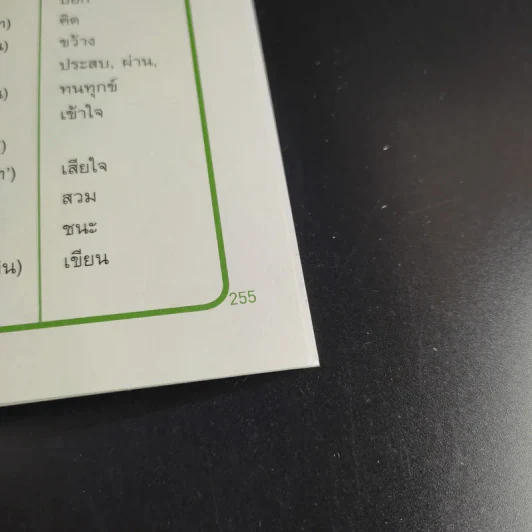 คิด
ขว้าง
ประสบ, ผ่าน,
ทนทุกข์
เข้าใจ
เสียใจ
สวม
ชนะ
เขียน
255